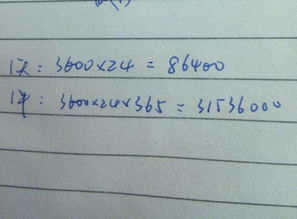 1天：3600×24 = 86400
1年：3600×24×365 = 31536000